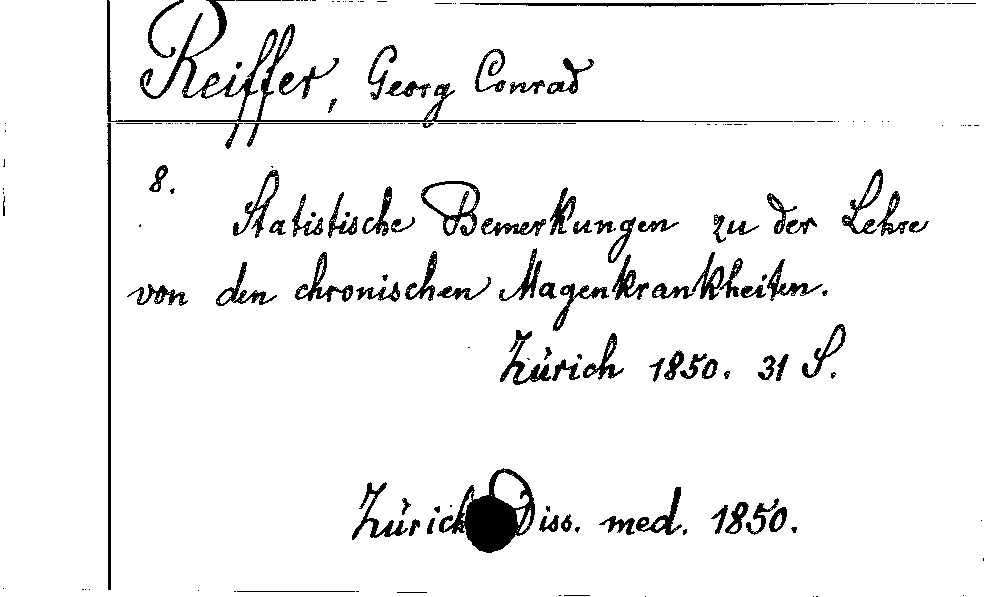 Reiffer, Georg Conrad
8.
Statistische Bemerkungen zu der Lehre
von den chronischen Magenkrankheiten.
Zürich 1850. 31 S.
Zürich Diss. med. 1850.